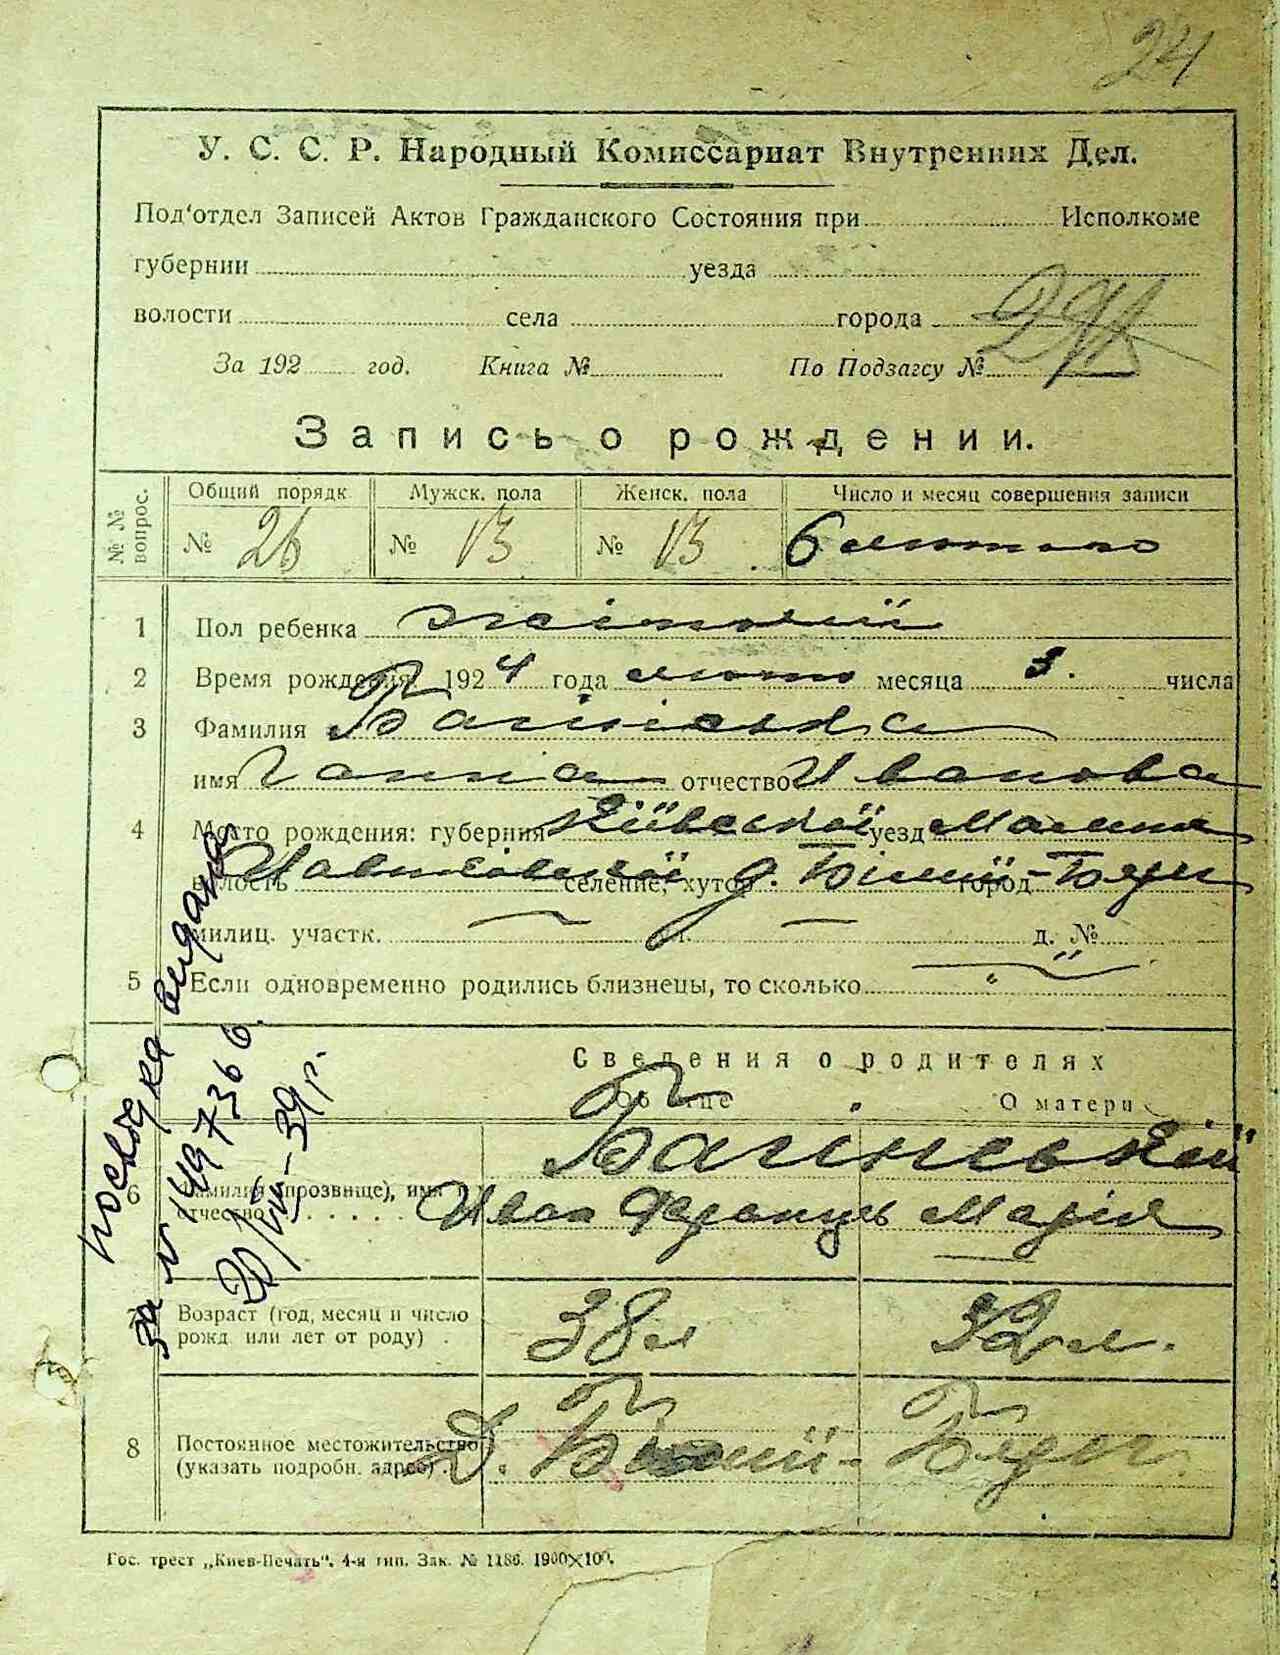 24
У. С. С. Р. Народный Комиссариат Внутренних Дел.
Под'отдел Записей Актов Гражданского Состояния при Исполкоме
губернии уезда
волости села города
За 192 год. Книга № По Подзагсу №
Запись о рождении.
№ № вопрос. Общий порядк. Мужск. пола Женск. пола Число и месяц совершения записи
№ 26 № 13 № 13 6 лютого
1 Пол ребенка жіночий
2 Время рождения 1924 года лютого месяца 3. числа
3 Фамилия Багінська
имя Ганна отчество Иванова
4 Место рождения: губерния Київської уезд Малина
волость селение, хутор д. Білий-Берег город
милиц. участк. ул. д. №
5 Если одновременно родились близнецы, то сколько
Сведения о родителях
Об отце О матери
Багінський
6 Фамилия (прозвище), имя и отчество Иван Францев Марія
7 Возраст (год, месяц и число рожд. или лет от роду) 38 л 32 л.
8 Постоянное местожительство (указать подробн. адрес) Д. Білий-Берег.
посвідка видана
за № 197366.
20/III-39 р.
Гос. трест „Киев-Печать". 4-я тип. Зак. № 1186. 1900×100.